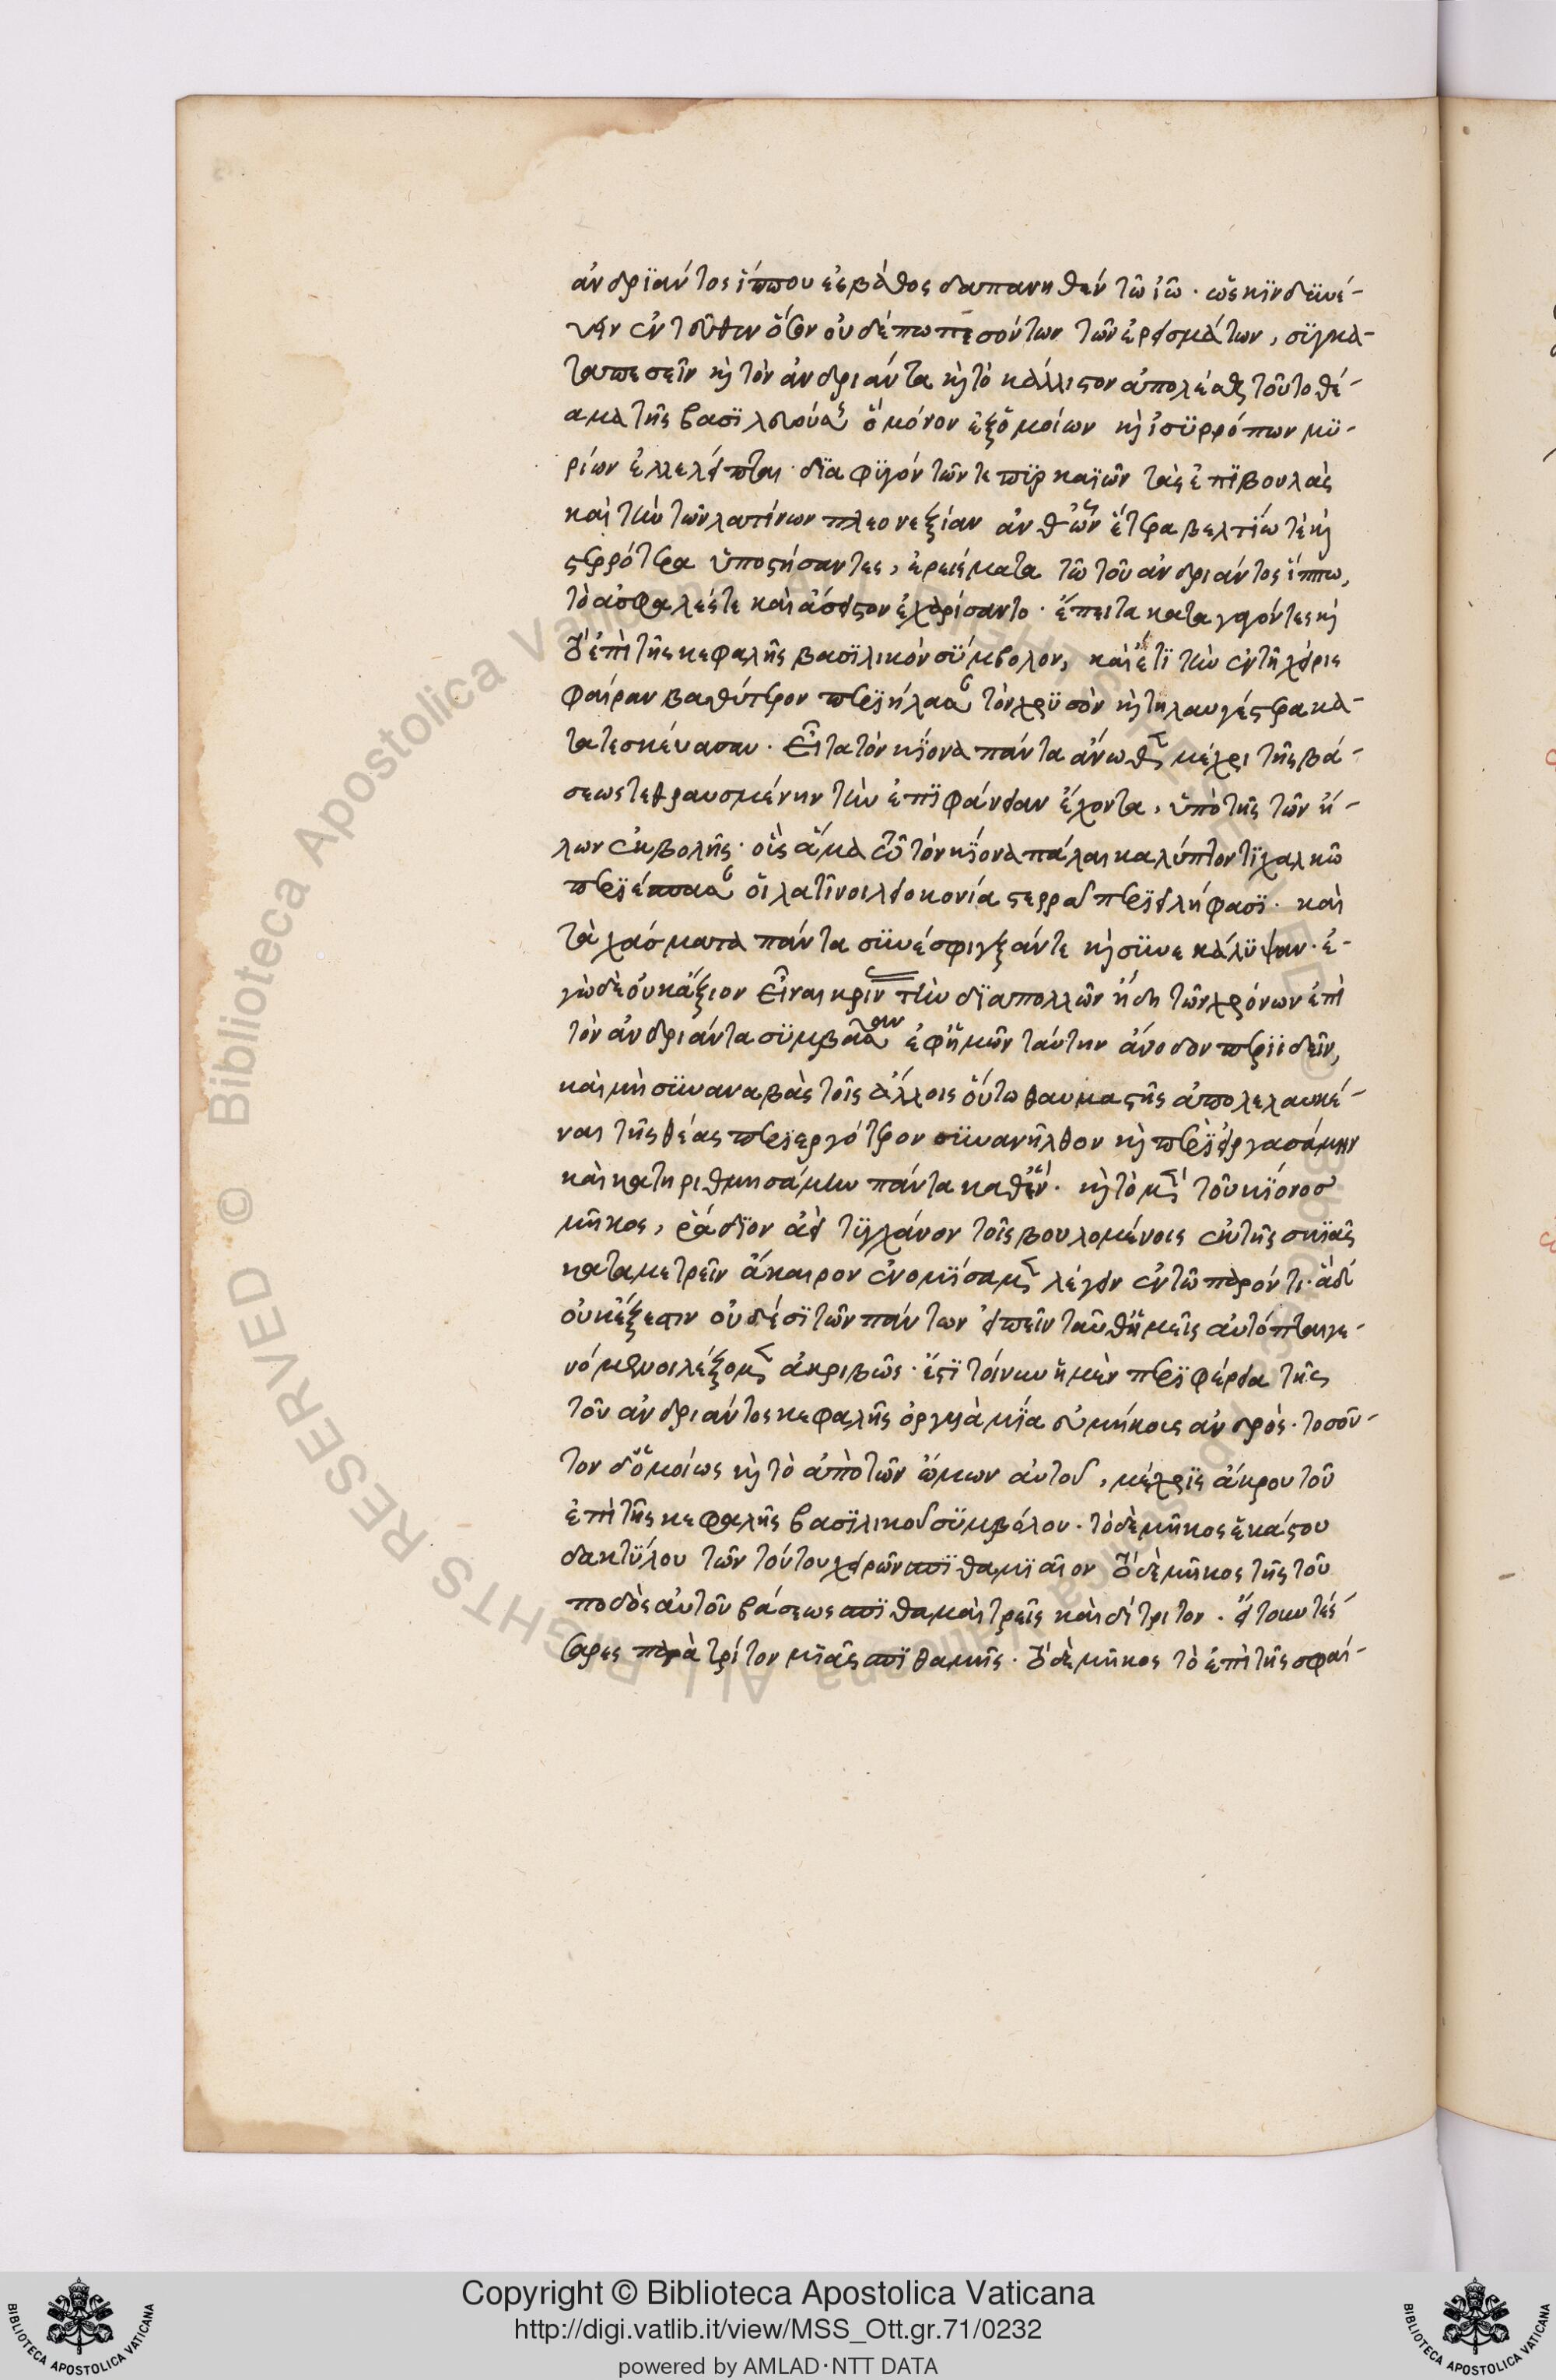 ἀνδρϊάντος ἵππου εἰς βάθος δαπανηθὲν τῶ ἰῶ· ὡς κϊνδϋνέ-
υειν ἐντεῦθεν ὅσον οὐδέπω πεσόντων τῶν ἐρεισμάτων, σϋγκα-
ταπεσεῖν καὶ τὸν ἀνδριάντα καὶ τὸ κάλλιστον ἀπολέσθαι τοῦτο θέ-
αμα τῆς βασϊλευούσης ὃ μόνον ἐξ ὁμοίων καὶ ἰσϋρρόπων μϋ-
ρίων ἐλλέλειπται· δϊαφϋγὸν τῶν τε πϋρκαϊῶν τὰς ἐπϊβουλὰς
καὶ τὴν τῶν λατίνων πλεονεξίαν ἀνθ' ὧν ἕτερα βελτϊώ τὲ καὶ
στερρότερα ὑποστήσαντες, ἐρείσματα τῶ τοῦ ἀνδριάντος ἵππω,
τὸ ἀσφαλές τε καὶ ἄσειστον ἐχαρίσαντο· ἔπειτα καταγαγόντες καὶ
τὸ ἐπὶ τῆς κεφαλῆς βασϊλικὸν σϋμβολον, καὶ ἔτϊ τὴν ἐν τῆ χειρὶ σ
φαίραν βαθύτερον περϊήλασαν τὸν χρϋσὸν καὶ τηλαυγέστερα κα-
τατεσκεύασαν· εἶτα τὸν κϊονα πάντα ἄνωθεν μέχρι τῆς βά-
σεως τεθραυσμένην τὴν ἐπϊφάνειαν ἔχοντα, ὑπὸ τῆς τῶν ἥ-
λων ἐκβολῆς· οὓς ἅμα τῶ τὸν κϊονα πάλαι καλύπτοντϊ χαλκῶ
περϊέσπασαν οἱ λατῖνοι λειοκονία στερρᾶ περϊειλήφασϊ· καὶ
τὰ χάσματα πάντα σϋνέσφιγξάν τε καὶ σϋνεκάλϋψαν· ἐ-
γὼ δὲ οὐκ ἄξιον εἶναι κρίνων τὴν δϊα πολλῶν ἤδη τῶν χρόνων ἐπὶ
τὸν ἀνδριάντα σϋμβᾶσαν ἐφ' ἡμῶν ταύτην ἄνοδον περϊϊδεῖν,
καὶ μὴ σϋναναβὰς τοῖς ἄλλοις οὕτω θαυμαστῆς ἀπολελαυκέ-
ναι τῆς θέας περϊεργότερον σϋνανῆλθον καὶ περϊειργασάμην
καὶ κατηριθμησάμην πάντα καθ' ἕν· καὶ τὸ μὲν τοῦ κϊονοσ
μῆκος, ῥάδϊον ἀεὶ τϋγχάνον τοῖς βουλομένοις ἐκ τῆς σκϊᾶς
καταμετρεῖν ἄκαιρον ἐνομϊσαμεν λέγειν ἐν τῶ παρόντι· ἃ δὲ
οὐκ ἔξεστιν οὐδέσϊ τῶν πάντων εἰπεῖν ταῦθ' ἡμεῖς αὐτόπται γε-
νόμενοι λέξομεν ἀκριβῶς· ἔστϊ τοίνυν ἡ μὲν περϊφέρεια τῆς
τοῦ ἀνδριάντος κεφαλῆς ὀργυιὰ μϊα εὐμήκους ἀνδρὸς· τοσοῦ-
τον δ' ὁμοίως καὶ τὸ ἀπὸ τῶν ὤμων αὐτοῦ, μέχρϊς ἄκρου τοῦ
ἐπὶ τῆς κεφαλῆς βασϊλικοῦ σϋμβόλου· τὸ δὲ μῆκος ἑκάστου
δακτϋλου τῶν τούτου χειρῶν σπϊθαμϊαῖον τὸ δὲ μῆκος τῆς τοῦ
ποδὸς αὐτοῦ βάσεως σπϊθαμαὶ τρεῖς καὶ δίτριτον· εἴτουν τέσ
σαρες παρὰ τρίτον μϊᾶς σπϊθαμῆς· τὸ δὲ μῆκος τὸ ἐπὶ τῆς σφαί-
Copyright © Biblioteca Apostolica Vaticana
http://digi.vatlib.it/view/MSS_Ott.gr.71/0232
powered by AMLAD·NTT DATA